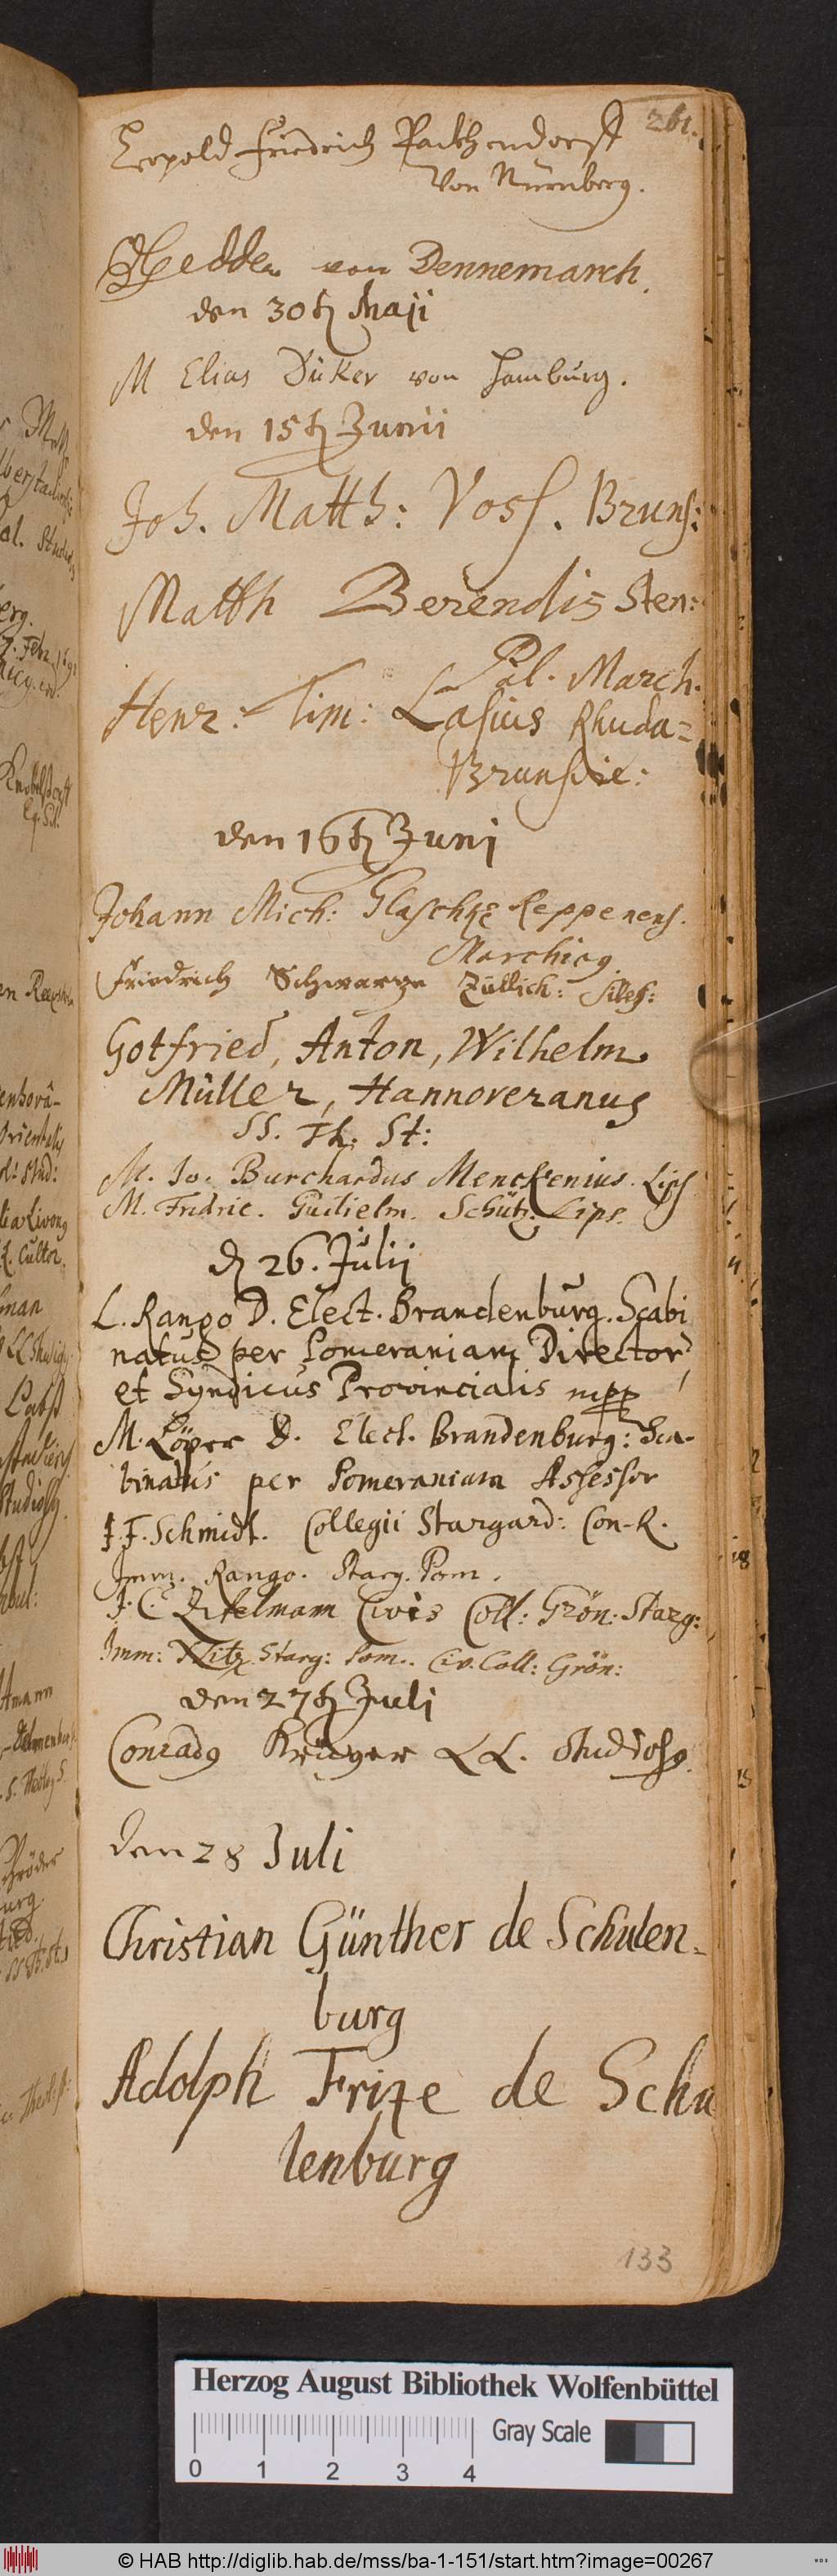 261.
Leopold Friedrich Packhendorff
Von Nürnberg.
Hedden von Dennemarck.
den 30th Maji
M Elias Düker von Hamburg.
den 15th Junii
Joh. Matth: Voss. Bruns:
Matth Berendis Sten:
Pal. March.
Henr: Tim: Lasius Rhuda=
Brunsvic:
den 16th Juni
Johann Mich: Glaschke Reppenens.
Marchicq.
Friedrich Schwarze Züllich: Siles:
Gotfried, Anton, Wilhelm
Müller, Hannoveranus
SS. Th. St:
M. Jo. Burchardus Menckenius. Lips
M. Fridric. Guilielm. Schütz. Lips.
d 26. Julii
L. Rango D. Elect. Brandenburg. Scabi
natus per Pomeraniam Director,
et Syndicus Provincialis mpp
M. Löper D. Elect. Brandenburg: Sca-
binatus per Pomeraniam Assessor
J. F. Schmidt. Collegii Stargard: Con-R.
Imm. Rango. Starg. Pom.
J. C. Zitelmann Civis Coll: Grön: Starg:
Imm: Starg: Pom. Civ. Coll: Grön:
den 27th Juli
Conradq Krüger LL. Studiosq.
den 28 Juli
Christian Günther de Schulen-
burg
Adolph Frize de Schu
lenburg
133
Herzog August Bibliothek Wolfenbüttel
0 1 2 3 4 Gray Scale
© HAB http://diglib.hab.de/mss/ba-1-151/start.htm?image=00267